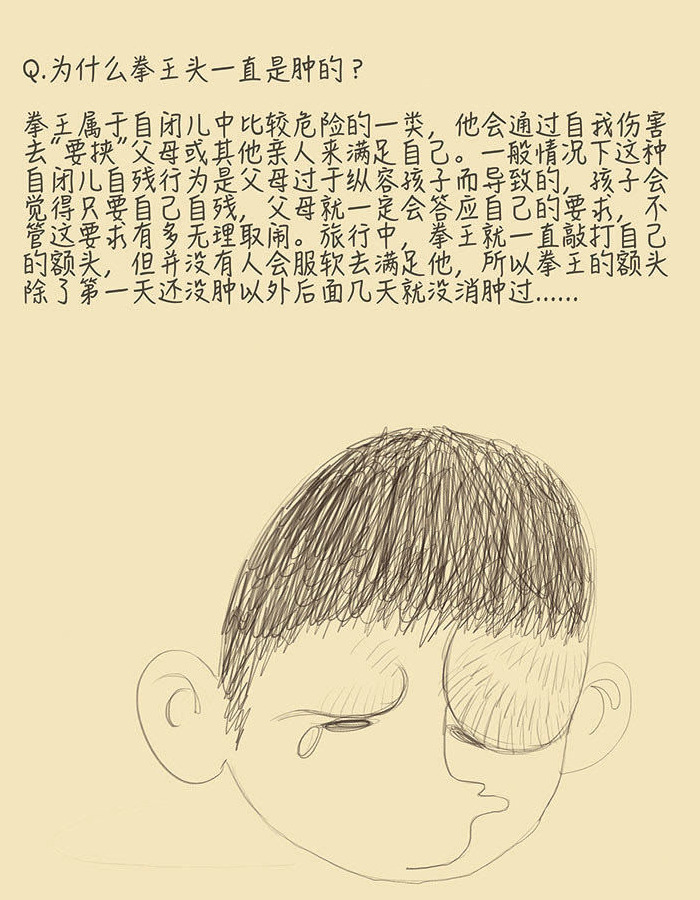 Q.为什么拳王头一直是肿的？
拳王属于自闭儿中比较危险的一类，他会通过自我伤害
去“要挟”父母或其他亲人来满足自己。一般情况下这种
自闭儿自残行为是父母过于纵容孩子而导致的，孩子会
觉得只要自己自残，父母就一定会答应自己的要求，不
管这要求有多无理取闹。旅行中，拳王就一直敲打自己
的额头，但并没有人会服软去满足他，所以拳王的额头
除了第一天还没肿以外后面几天就没消肿过……